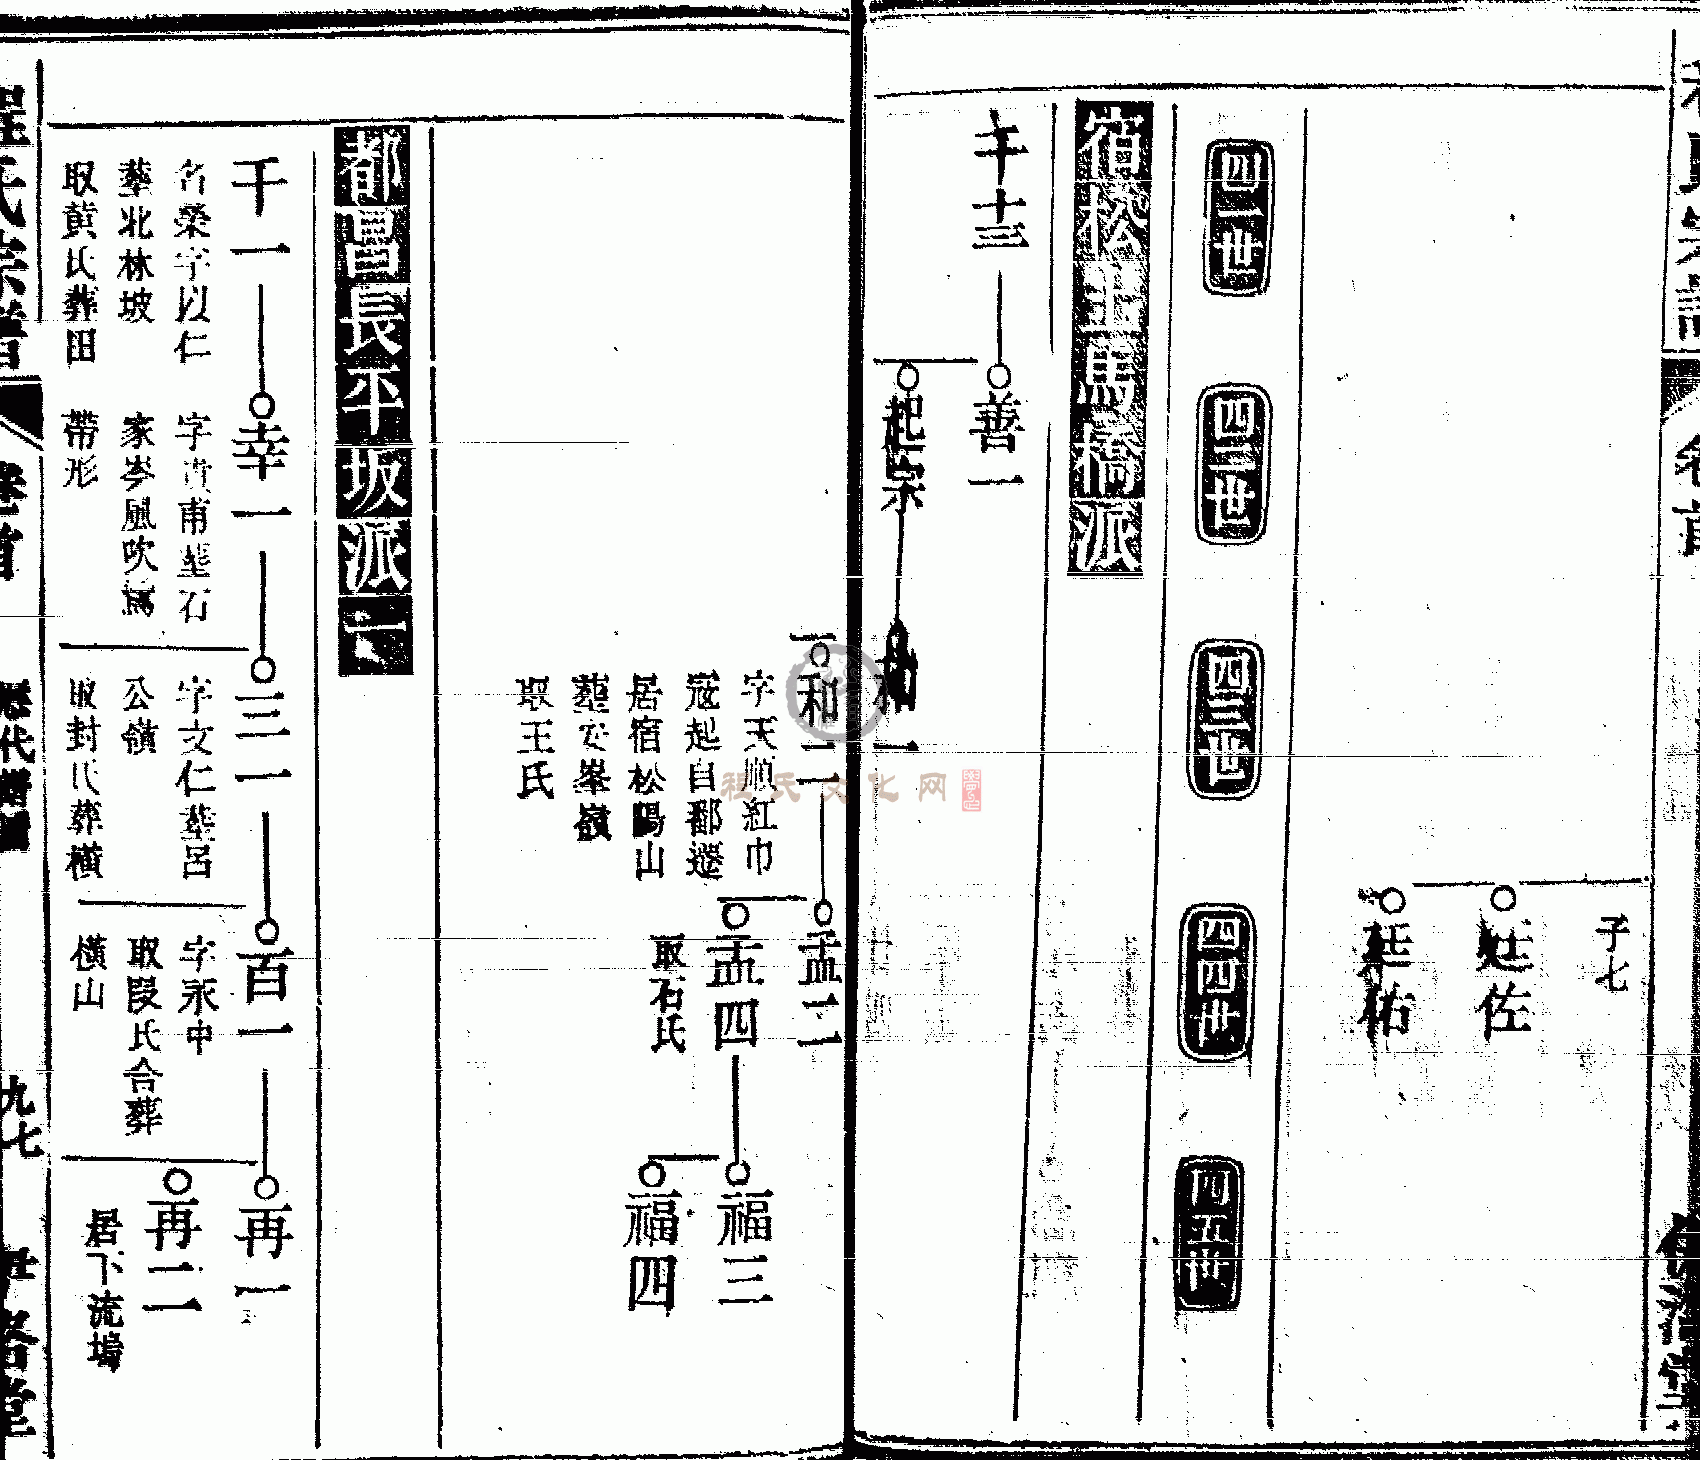 子七
廷佐
廷佑
四一世
四二世
四三世
四四世
四五世
宿松土馬橋派
千十三
善一
起宗
和一
和二
字天順紅巾
冦起自鄱遷
居宿松陽山
葬安峯嶺
取王氏
孟二
孟四
取石氏
福三
福四
都昌長平坂派一
千一
名榮字以仁
葬北林坡
取黄氏葬田
帶形
幸一
字貴甫葬石
家岑風吹
三一
字文仁葬呂
公嶺
取封氏葬橫
橫山
百一
字永中
取段氏合葬
再一
再二
居下流塢
程氏宗譜
卷首
歷代譜圖
九七
伊洛堂
程氏文化网